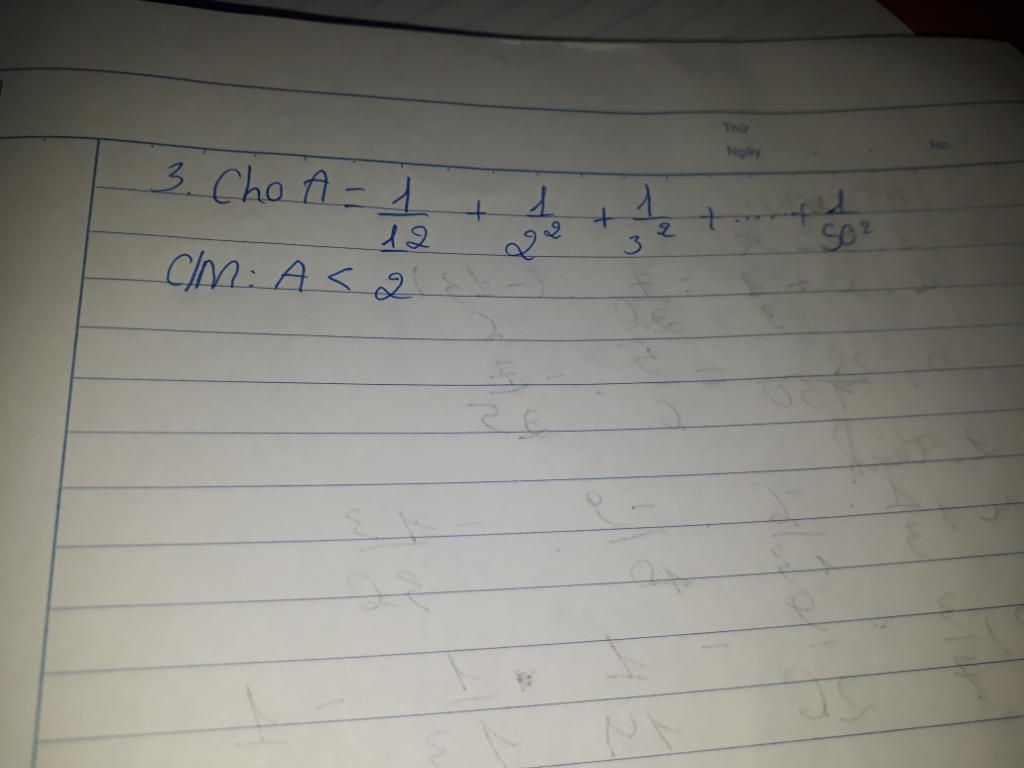 Thứ
Ngày No.
3. Cho A = 1/12 + 1/2² + 1/3² + ..... + 1/50²
C/M: A < 2